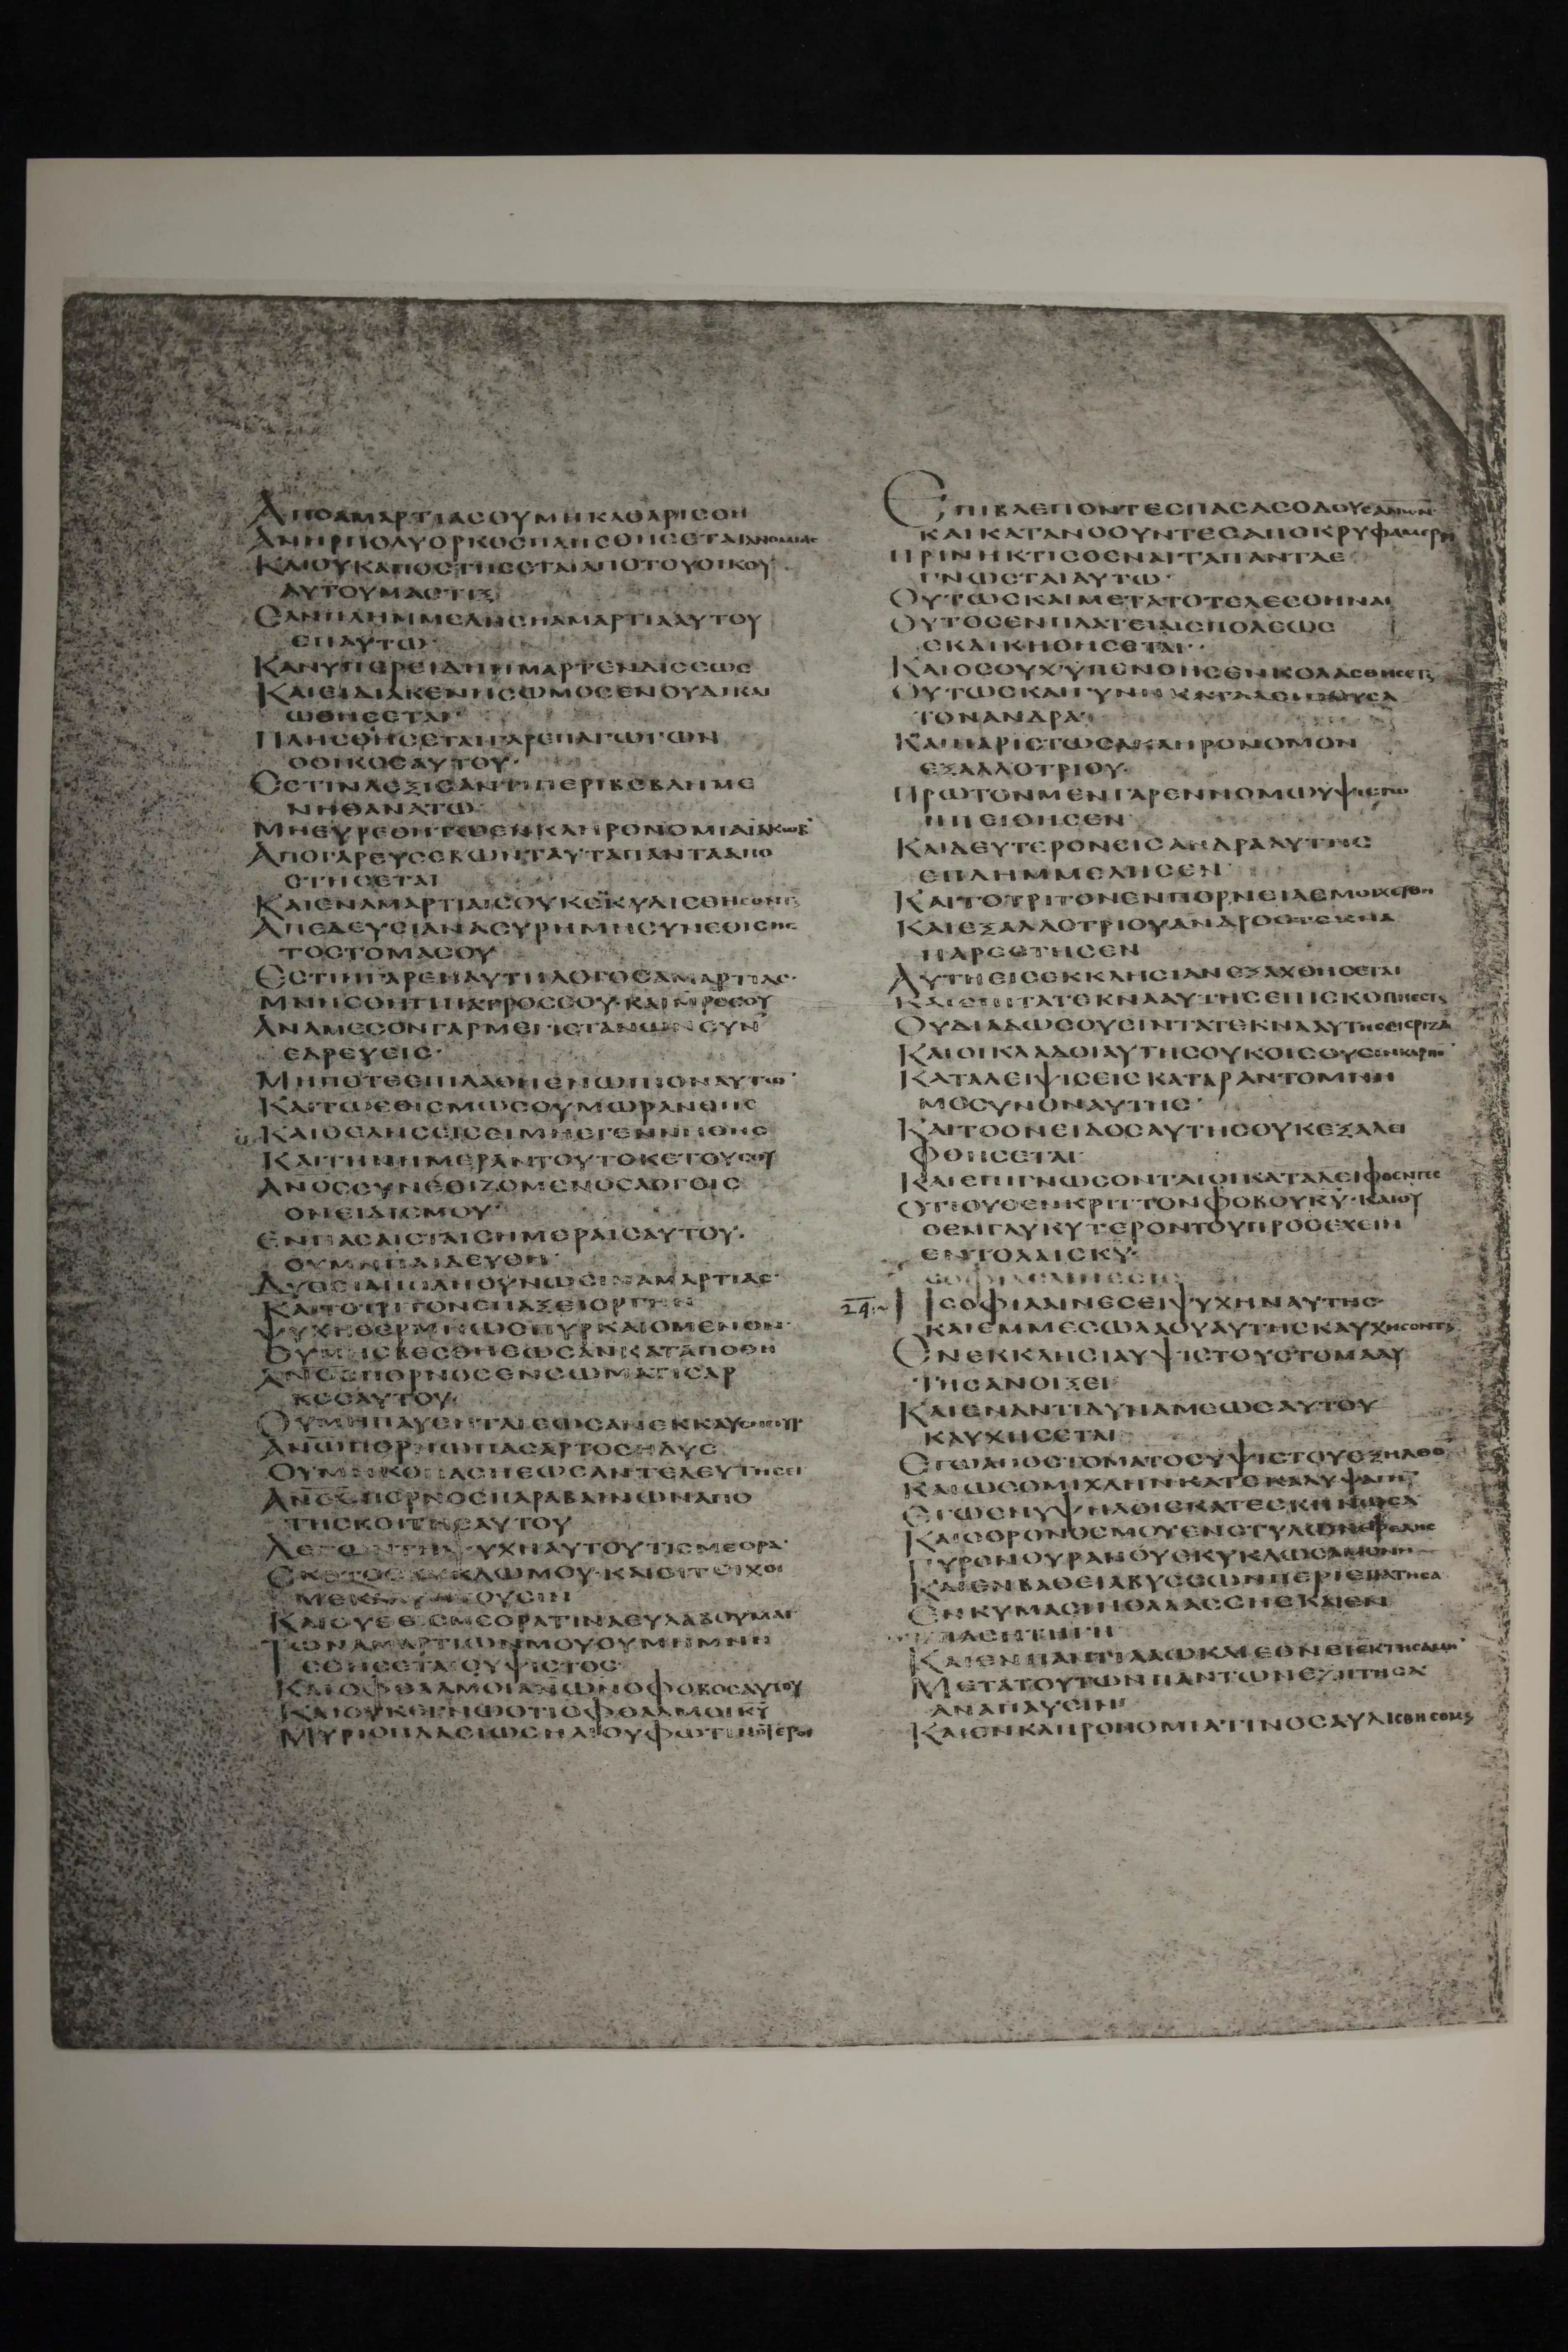 ΑΠΟΑΜΑΡΤΙΑϹΟΥΜΗΚΑΘΑΡΙϹΘΗ
ΑΝΗΡΠΟΛΥΟΡΚΟϹΠΛΗϹΘΗϹΕΤΑΙΑΝΟΜΙΑϹ
ΚΑΙΟΥΚΑΠΟϹΤΗϹΕΤΑΙΑΠΟΤΟΥΟΙΚΟΥ
ΑΥΤΟΥΜΑϹΤΙΞ
ΕΑΝΠΛΗΜΜΕΛΗϹΗΑΜΑΡΤΙΑΑΥΤΟΥ
ΕΠΑΥΤΩ·
ΚΑΝΥΠΕΡΕΙΔΗΗΜΑΡΤΕΝΔΙϹϹΩϹ
ΚΑΙΕΙΔΙΑΚΕΝΗϹΩΜΟϹΕΝΟΥΔΙΚΑΙ
ΩΘΗϹΕΤΑΙ·
ΠΛΗϹΘΗϹΕΤΑΙΓΑΡΕΠΑΓΩΓΩΝ
ΟΟΙΚΟϹΑΥΤΟΥ·
ΕϹΤΙΝΛΕΞΙϹΑΝΤΙΠΕΡΙΒΕΒΛΗΜΕ
ΝΗΘΑΝΑΤΩ·
ΜΗΕΥΡΕΘΗΤΩΕΝΚΛΗΡΟΝΟΜΙΑΙΑΚΩΒ·
ΑΠΟΓΑΡΕΥϹΕΒΩΝΤΑΥΤΑΠΑΝΤΑΑΠΟ
ϹΤΗϹΕΤΑΙ
ΚΑΙΕΝΑΜΑΡΤΙΑΙϹΟΥΚΕΚΥΛΙϹΘΗϹΟΝΤΑΙ
ΑΠΕΔΕΥϹΙΑΝΑϹΥΡΗΜΗϹΥΝΕΘΙϹΗϹ
ΤΟϹΤΟΜΑϹΟΥ
ΕϹΤΙΝΓΑΡΕΝΑΥΤΗΛΟΓΟϹΑΜΑΡΤΙΑϹ·
ΜΝΗϹΘΗΤΙΠΑΤΡΟϹϹΟΥ·ΚΑΙΜΡΟϹϹΟΥ
ΑΝΑΜΕϹΟΝΓΑΡΜΕΓΙϹΤΑΝΩΝϹΥΝ
ΕΔΡΕΥΕΙϹ·
ΜΗΠΟΤΕΕΠΙΛΑΘΗΕΝΩΠΙΟΝΑΥΤΩ·
ΚΑΙΤΩΕΘΙϹΜΩϹΟΥΜΩΡΑΝΘΗϹ
ΚΑΙΘΕΛΗϹΕΙϹΕΙΜΗΕΓΕΝΝΗΘΗϹ
ΚΑΙΤΗΝΗΜΕΡΑΝΤΟΥΤΟΚΕΤΟΥϹΟΥ
ΑΝΟϹϹΥΝΕΘΙΖΟΜΕΝΟϹΛΟΓΟΙϹ
ΟΝΕΙΔΙϹΜΟΥ·
ΕΝΠΑϹΑΙϹΤΑΙϹΗΜΕΡΑΙϹΑΥΤΟΥ·
ΟΥΜΗΠΑΙΔΕΥΘΗ·
ΚΑΙΤΟΤΡΙΤΟΝΕΠΑΞΕΙΟΡΓΗΝ
ΨΥΧΗΘΕΡΜΗΩϹΠΥΡΚΑΙΟΜΕΝΟΝ·
ΟΥΜΗϹΒΕϹΘΗΕΩϹΑΝΚΑΤΑΠΟΘΗ
ΑΝΟϹΠΟΡΝΟϹΕΝϹΩΜΑΤΙϹΑΡ
ΚΟϹΑΥΤΟΥ·
ΑΝΩΠΟΡΝΩΠΑϹΑΡΤΟϹΗΔΥϹ
ΟΥΜΗΚΟΠΑϹΗΕΩϹΑΝΤΕΛΕΥΤΗϹΕΙ
ΑΝΟϹΠΟΡΝΟϹΠΑΡΑΒΑΙΝΩΝΑΠΟ
ΤΗϹΚΟΙΤΗϹΑΥΤΟΥ
ΛΕΓΩΝΤΗΨΥΧΗΑΥΤΟΥΤΙϹΜΕΟΡΑ·
ϹΚΟΤΟϹΚΥΚΛΩΜΟΥ·ΚΑΙΟΙΤΟΙΧΟΙ
ΜΕΚΑΛΥΠΤΟΥϹΙΝ
ΚΑΙΟΥΘΕΙϹΜΕΟΡΑΤΙΝΑΕΥΛΑΒΟΥΜΑΙ
ΤΩΝΑΜΑΡΤΙΩΝΜΟΥΟΥΜΗΜΝΗ
ϹΘΗϹΕΤΑΙΟΥΨΙϹΤΟϹ
ΚΑΙΟΦΘΑΛΜΟΙΑΝΩΝΟΦΟΒΟϹΑΥΤΟΥ
ΚΑΙΟΥΚΕΓΝΩΟΤΙΟΦΘΑΛΜΟΙΚΥ
ΜΥΡΙΟΠΛΑϹΙΩϹΗΛΙΟΥΦΩΤΙΝΟΤΕΡΟΙ
ΕΠΙΒΛΕΠΟΝΤΕϹΠΑϹΑϹΟΔΟΥϹΑΝΩΝ·
ΚΑΙΚΑΤΑΝΟΟΥΝΤΕϹΑΠΟΚΡΥΦΑΜΕΡΗ
ΠΡΙΝΗΚΤΙϹΘΕΝΑΙΤΑΠΑΝΤΑΕ
ΓΝΩϹΤΑΙΑΥΤΩ·
ΟΥΤΩϹΚΑΙΜΕΤΑΤΟΤΕΛΕϹΘΗΝΑΙ
ΟΥΤΟϹΕΝΠΛΑΤΕΙΑΙϹΠΟΛΕΩϹ
ΕΚΔΙΚΗΘΗϹΕΤΑΙ·
ΚΑΙΟϹΟΥΧΥΠΕΝΟΗϹΕΝΚΟΛΑϹΘΗϹΕΤΑΙ
ΟΥΤΩϹΚΑΙΓΥΝΗΚΑΤΑΛΕΙΠΟΥϹΑ
ΤΟΝΑΝΔΡΑ·
ΚΑΙΠΑΡΙϹΤΩϹΑΚΛΗΡΟΝΟΜΟΝ
ΕΞΑΛΛΟΤΡΙΟΥ·
ΠΡΩΤΟΝΜΕΝΓΑΡΕΝΝΟΜΩΥΨΙϹΤΟΥ
ΗΠΕΙΘΗϹΕΝ
ΚΑΙΔΕΥΤΕΡΟΝΕΙϹΑΝΔΡΑΑΥΤΗϹ
ΕΠΛΗΜΜΕΛΗϹΕΝ
ΚΑΙΤΟΤΡΙΤΟΝΕΝΠΟΡΝΕΙΑΕΜΟΙΧΕΥΘΗ
ΚΑΙΕΞΑΛΛΟΤΡΙΟΥΑΝΔΡΟϹΤΕΚΝΑ
ΠΑΡΕϹΤΗϹΕΝ
ΑΥΤΗΕΙϹΕΚΚΛΗϹΙΑΝΕΞΑΧΘΗϹΕΤΑΙ
ΚΑΙΕΠΙΤΑΤΕΚΝΑΑΥΤΗϹΕΠΙϹΚΟΠΗΕϹΤΑΙ
ΟΥΔΙΑΔΩϹΟΥϹΙΝΤΑΤΕΚΝΑΑΥΤΗϹΕΙϹΡΙΖΑΝ
ΚΑΙΟΙΚΛΑΔΟΙΑΥΤΗϹΟΥΚΟΙϹΟΥϹΙΝΚΑΡΠΟΝ
ΚΑΤΑΛΕΙΨΕΙϹΕΙϹΚΑΤΑΡΑΝΤΟΜΝΗ
ΜΟϹΥΝΟΝΑΥΤΗϹ·
ΚΑΙΤΟΟΝΕΙΔΟϹΑΥΤΗϹΟΥΚΕΞΑΛΕΙ
ΦΘΗϹΕΤΑΙ·
ΚΑΙΕΠΙΓΝΩϹΟΝΤΑΙΟΙΚΑΤΑΛΕΙΦΘΕΝΤΕϹ
ΟΤΙΟΥΘΕΝΚΡΙΤΤΟΝΦΟΒΟΥΚΥ·ΚΑΙΟΥ
ΘΕΝΓΛΥΚΥΤΕΡΟΝΤΟΥΠΡΟϹΕΧΕΙΝ
ΕΝΤΟΛΑΙϹΚΥ·
24
ΗϹΟΦΙΑΑΙΝΕϹΕΙΨΥΧΗΝΑΥΤΗϹ·
ΚΑΙΕΜΜΕϹΩΛΑΟΥΑΥΤΗϹΚΑΥΧΗϹΕΤΑΙ
ΕΝΕΚΚΛΗϹΙΑΥΨΙϹΤΟΥϹΤΟΜΑΑΥ
ΤΗϹΑΝΟΙΞΕΙ
ΚΑΙΕΝΑΝΤΙΔΥΝΑΜΕΩϹΑΥΤΟΥ
ΚΑΥΧΗϹΕΤΑΙ
ΕΓΩΑΠΟϹΤΟΜΑΤΟϹΥΨΙϹΤΟΥΕΞΗΛΘΟΝ
ΚΑΙΩϹΟΜΙΧΛΗΚΑΤΕΚΑΛΥΨΑΓΗΝ
ΕΓΩΕΝΥΨΗΛΟΙϹΚΑΤΕϹΚΗΝΩϹΑ
ΚΑΙΟΘΡΟΝΟϹΜΟΥΕΝϹΤΥΛΩΝΕΦΕΛΗϹ
ΓΥΡΟΝΟΥΡΑΝΟΥΕΚΥΚΛΩϹΑΜΟΝΗ
ΚΑΙΕΝΒΑΘΕΙΑΒΥϹϹΩΝΠΕΡΙΕΠΑΤΗϹΑ
ΕΝΚΥΜΑϹΙΝΘΑΛΑϹϹΗϹΚΑΙΕΝ
ΠΑϹΗΤΗΓΗ
ΚΑΙΕΝΠΑΝΤΙΛΑΩΚΑΙΕΘΝΕΙΕΚΤΗϹΑΜΗΝ
ΜΕΤΑΤΟΥΤΩΝΠΑΝΤΩΝΕΖΗΤΗϹΑ
ΑΝΑΠΑΥϹΙΝ
ΚΑΙΕΝΚΛΗΡΟΝΟΜΙΑΤΙΝΟϹΑΥΛΙϹΘΗϹΟΜΑΙ